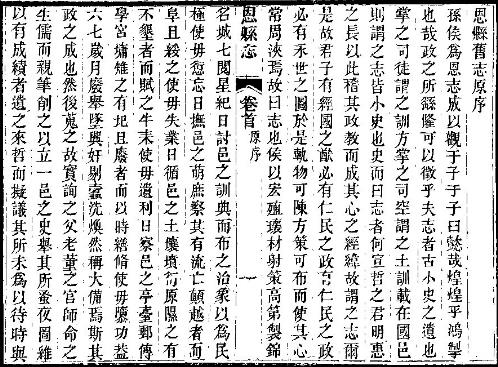 恩縣舊志原序
孫侯為恩志成以觀于于子于子曰懿哉煌煌乎鴻掣
也哉政之所繇隆可以徵乎夫志者古小史之遺也
掌之司徒謂之訓方掌之司空謂之土訓載在國邑
則謂之志皆小史也史而曰志者何宣哲之君明惠
之長以此稽其政教而成其心之經緯故謂之志爾
是故君子有經國之猷必有仁民之政有仁民之政
必有永世之圖於是軌物可陳方策可布而使其心
常周浹焉故曰志也侯以宏瓌瑋材射策高第製錦
恩縣志
卷首
原序
一
名城七閱星紀日討邑之訓典而布之治象以為民
極使毋愆忘日撫邑之萌庶察其有流亡顛越者而
阜且綏之使毋失業日循邑之土壤墳衍原隰之有
不墾者而賦之牛耒使毋遺利日察邑之亭臺郵傳
學宮墉雉之有圮且廢者而以時繕脩使毋隳功益
六七歲月廢舉墜興奸剔蠹洗煥然稱大備焉斯其
政之成也然後蒐之故實詢之父老董之官師命之
生儒而親筆創之以立一邑之史舉其所蚤夜圖維
以有成績者遺之來哲而擬議其所未為以待時與